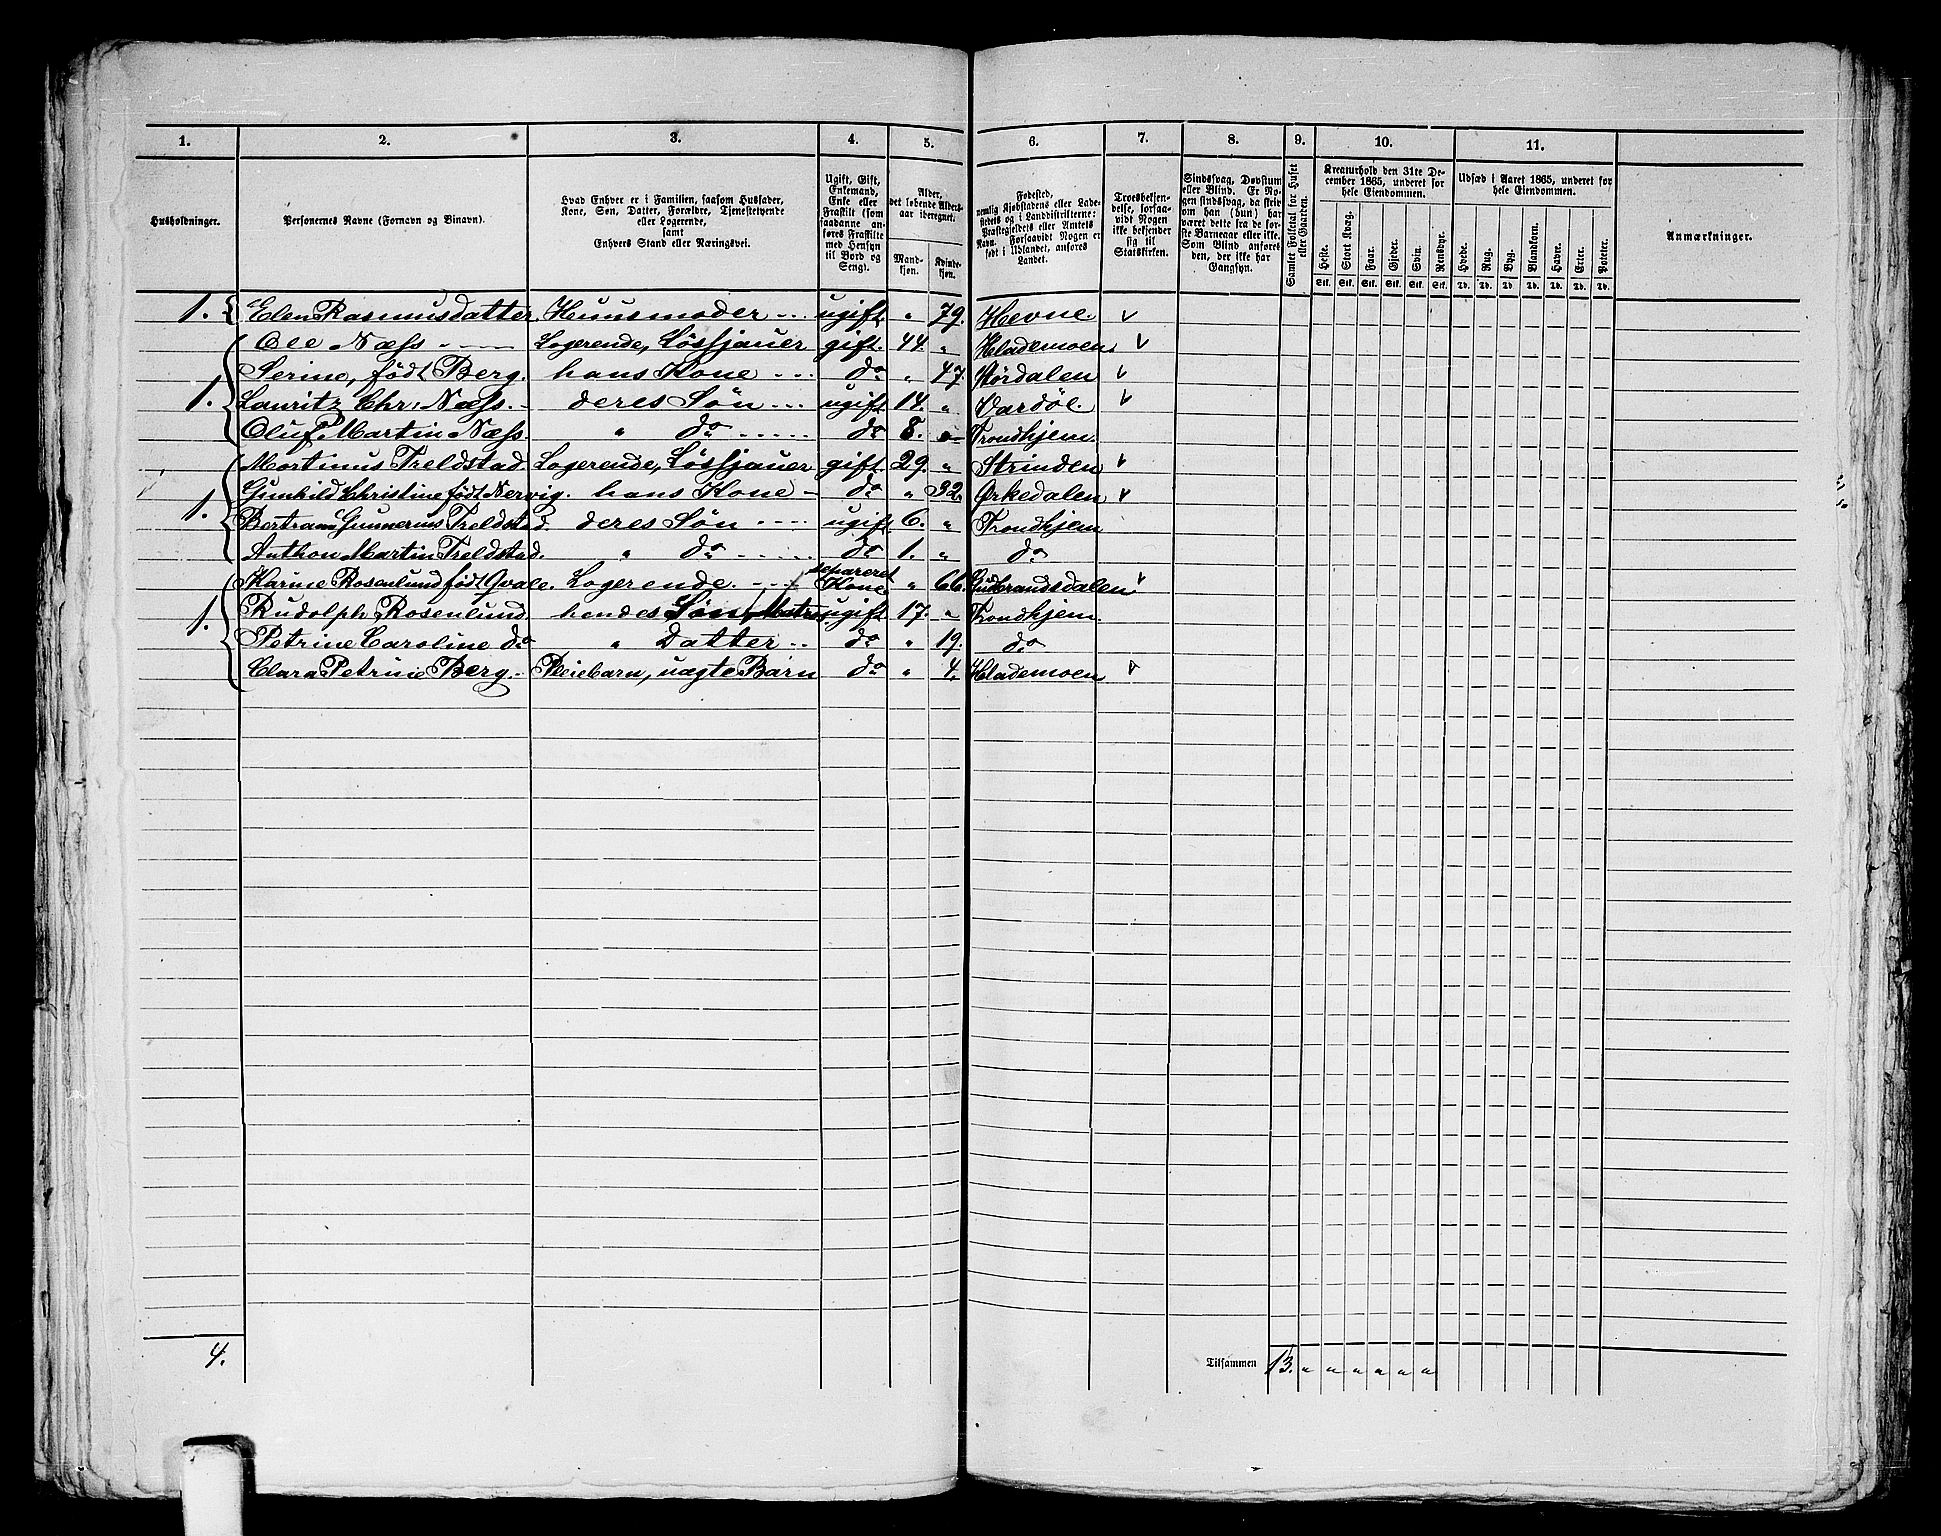 1. 2. 3. 4. 5. 6. 7. 8. 9. 10. 11.
Husholdninger.
Personernes Navne (Fornavn og Binavn).
Hvad Enhver er i Familien, saasom Husfader,
Kone, Søn, Datter, Forældre, Tjenestetyende
eller Logerende,
samt
Enhvers Stand eller Næringsvei.
Ugift, Gift,
Enkemand,
Enke eller
Fraskilt (som
saadanne an-
føres Fraskilte
med Hensyn
til Bord og
Seng).
Alder,
det løbende Alders-
aar iberegnet.
Mand-
kjøn.
Kvinde-
kjøn.
Fødested,
nemlig Kjøbstadens eller Lade-
stedets og i Landdistrikterne:
Præstegjeldets eller Amtets
Navn. Forsaavidt Nogen er
født i Udlandet, anføres
Landet.
Troesbekjen-
delse, forsaa-
vidt Nogen
ikke bekjender
sig til
Statskirken.
Sindssvag, Døvstum
eller Blind. Er No-
gen sindssvag, da skriv
om han (hun) har
været dette fra de før-
ste Barneaar eller ikke.
Som Blind anføres
den, der ikke har
Gangsyn.
Samlet Folketal for Huset
eller Gaarden.
Kreaturhold den 31te De-
cember 1865, underet for
hele Eiendommen.
Heste. Stort Kvæg. Faar. Gjeder. Svin. Rensdyr.
Stk. Stk. Stk. Stk. Stk. Stk.
Udsæd i Aaret 1865, underet for
hele Eiendommen.
Hvede. Rug. Byg. Blandkorn. Havre. Erter. Poteter.
Td. Td. Td. Td. Td. Td. Td.
Anmærkninger.
1. Elen Rasmusdatter. Huusmoder --- ugift. " 79. Hevne. v
Ole Næss ---- Logerende, Løssjauer gift. 44. " Hlademoen. v
Serine, født Berg. hans Kone --- do " 47. Størdalen v
1. Lauritz Chr: Næss. - deres Søn --- ugift. 14. " Vardøe. v
Oluf Martin Næss. " do ----- do 8. " Trondhjem.
Mortinus Treldstad. Logerende, Løssjauer gift. 29. " Strinden v
Gunhild Christine født Nervig. hans Kone - do " 32. Ørkedalen v
1. Bertram Gunnerius Treldstad. deres Søn ---- ugift. 6. " Trondhjem
Anthon Martin Treldstad. " do ----- do 1. " do
Karine Rosenlund født Qvale. Logerende. --- separeret Kone. " 66. Gudbrandsdalen v
1. Rudolph Rosenlund. hendes Søn, Matros ugift 17. " Trondhjem.
Petrine Caroline do " Datter -- do " 19. do
Clara Petrine Berg. - Pleiebarn, uægte Barn do " 4. Hlademoen v
4. Tilsammen 13. " " " " " "